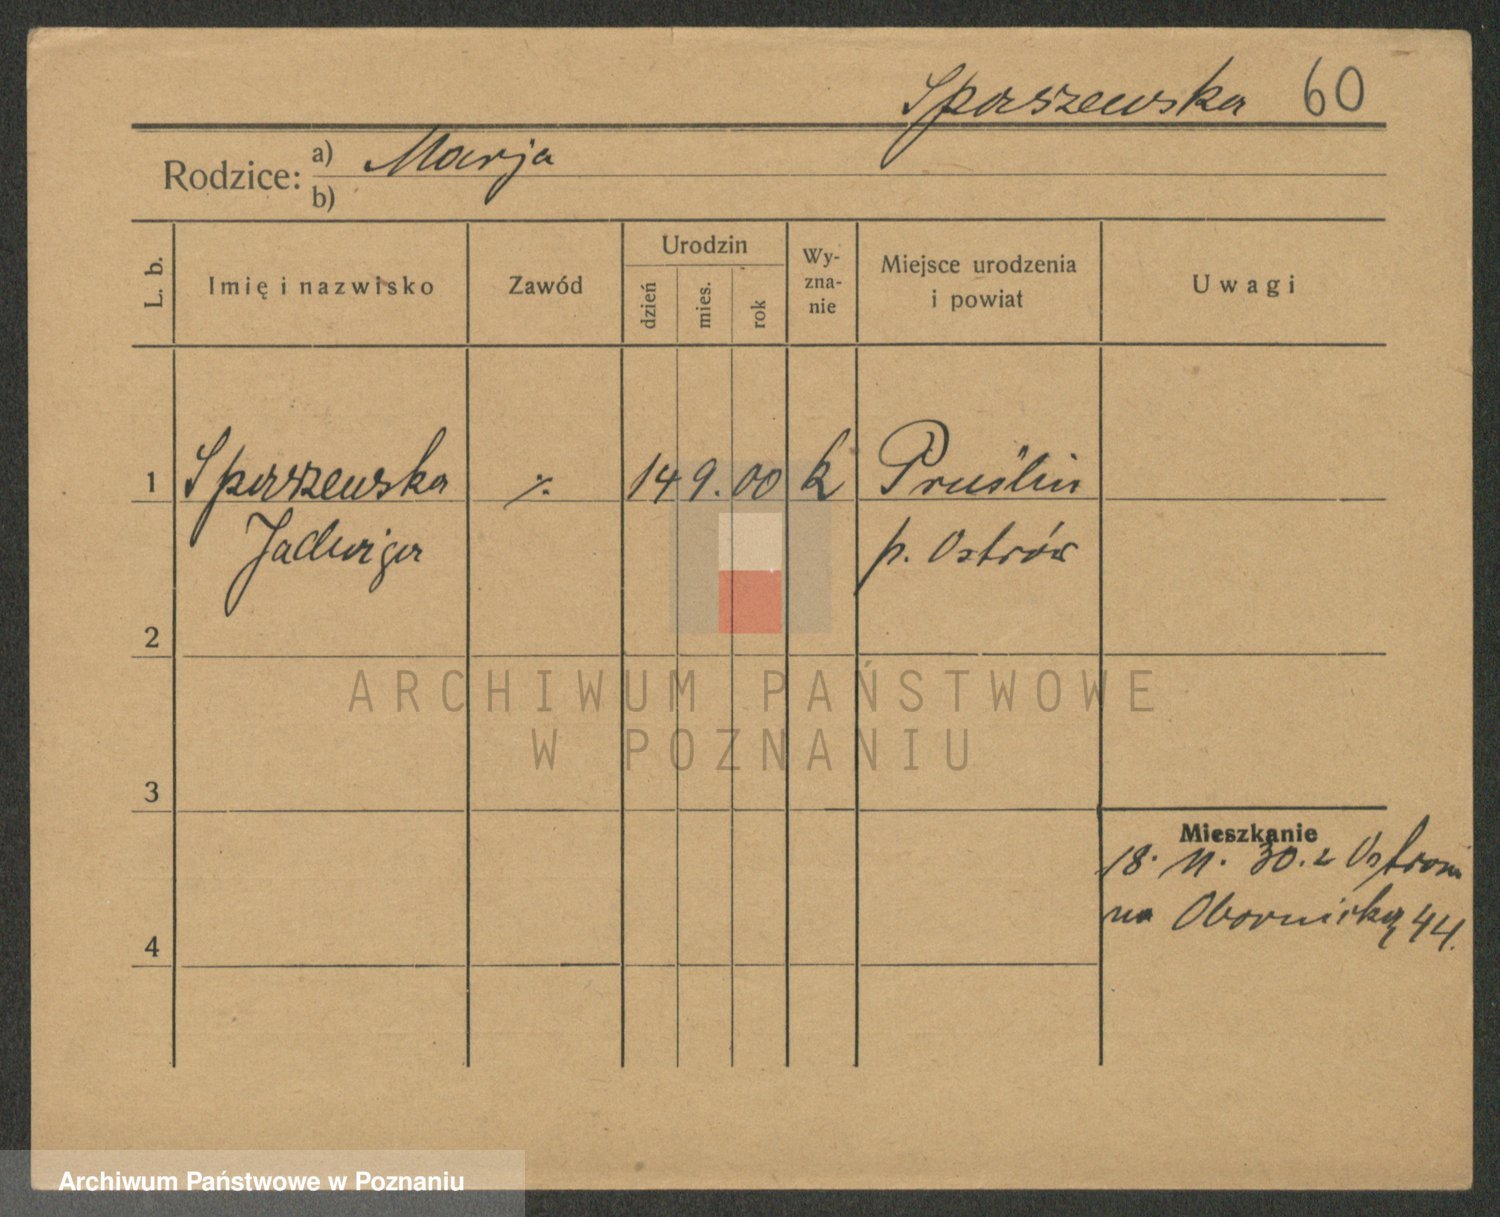 Spaszewska 60
Rodzice: a) Marja
b)
L. b. Imię i nazwisko Zawód Urodzin dzień mies. rok Wy-zna-nie Miejsce urodzenia i powiat Uwagi
1 Spaszewska ·/. 14 9. 00 k Pruślin
Jadwiga p. Ostrów
2
ARCHIWUM PAŃSTWOWE
W POZNANIU
3
Mieszkanie
18. 11. 30. z Ostrowa
na Obornicką 44.
4
Archiwum Państwowe w Poznaniu